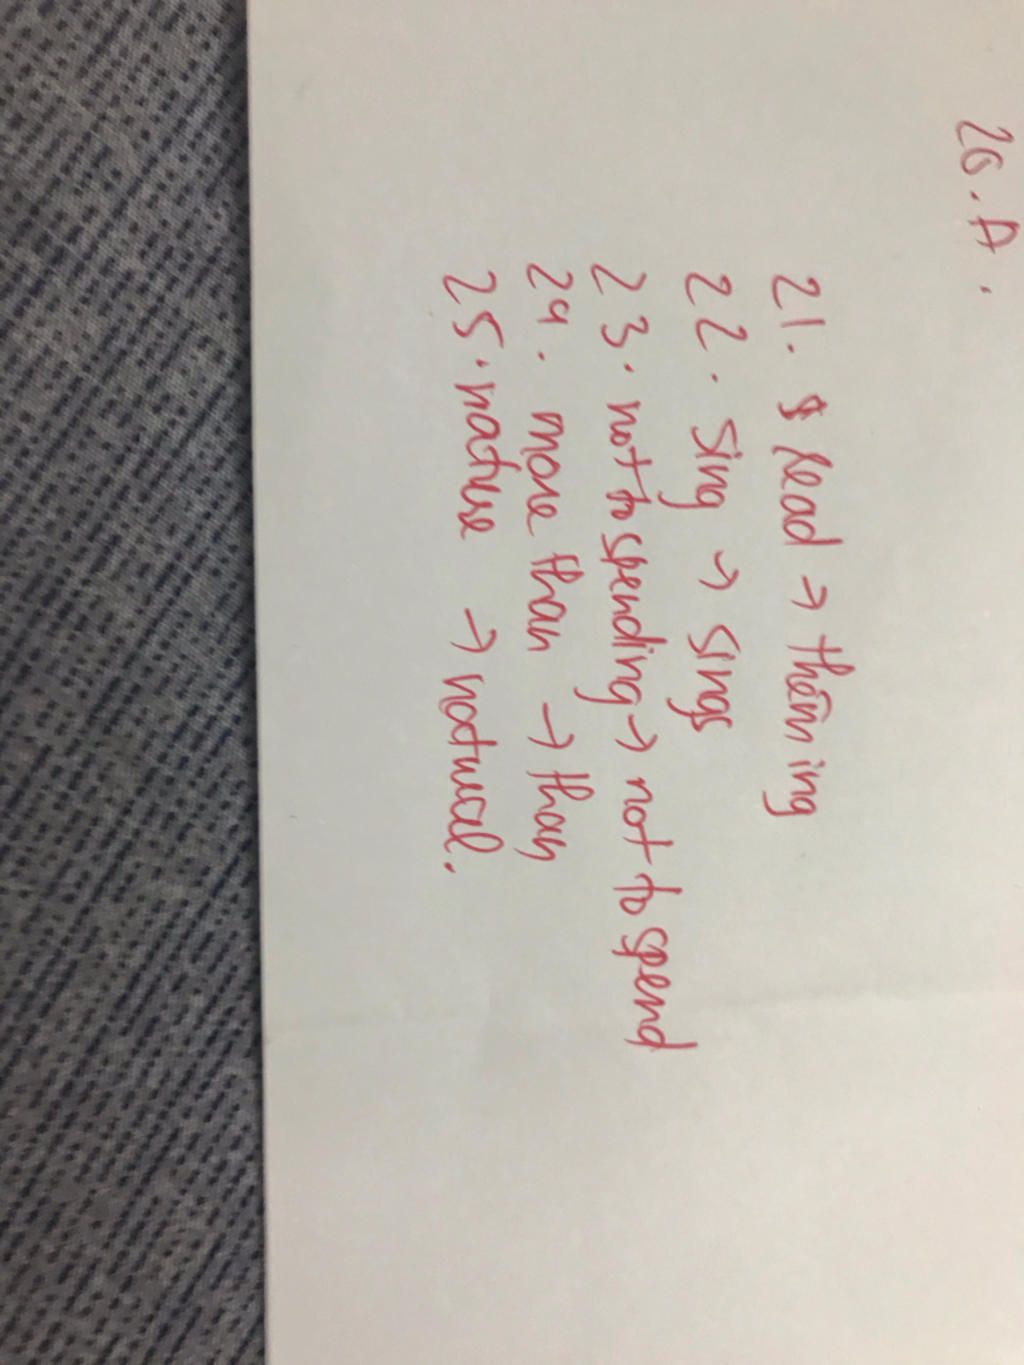 20. A.
21. read → thêm ing
22. sing → sings
23. not to spending → not to spend
24. more than → than
25. nature → natural.